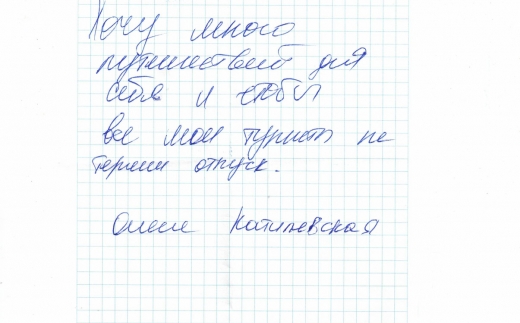 Хочу много
путешествий для
себя и чтобы
все мои туристы не
теряли отпуск.